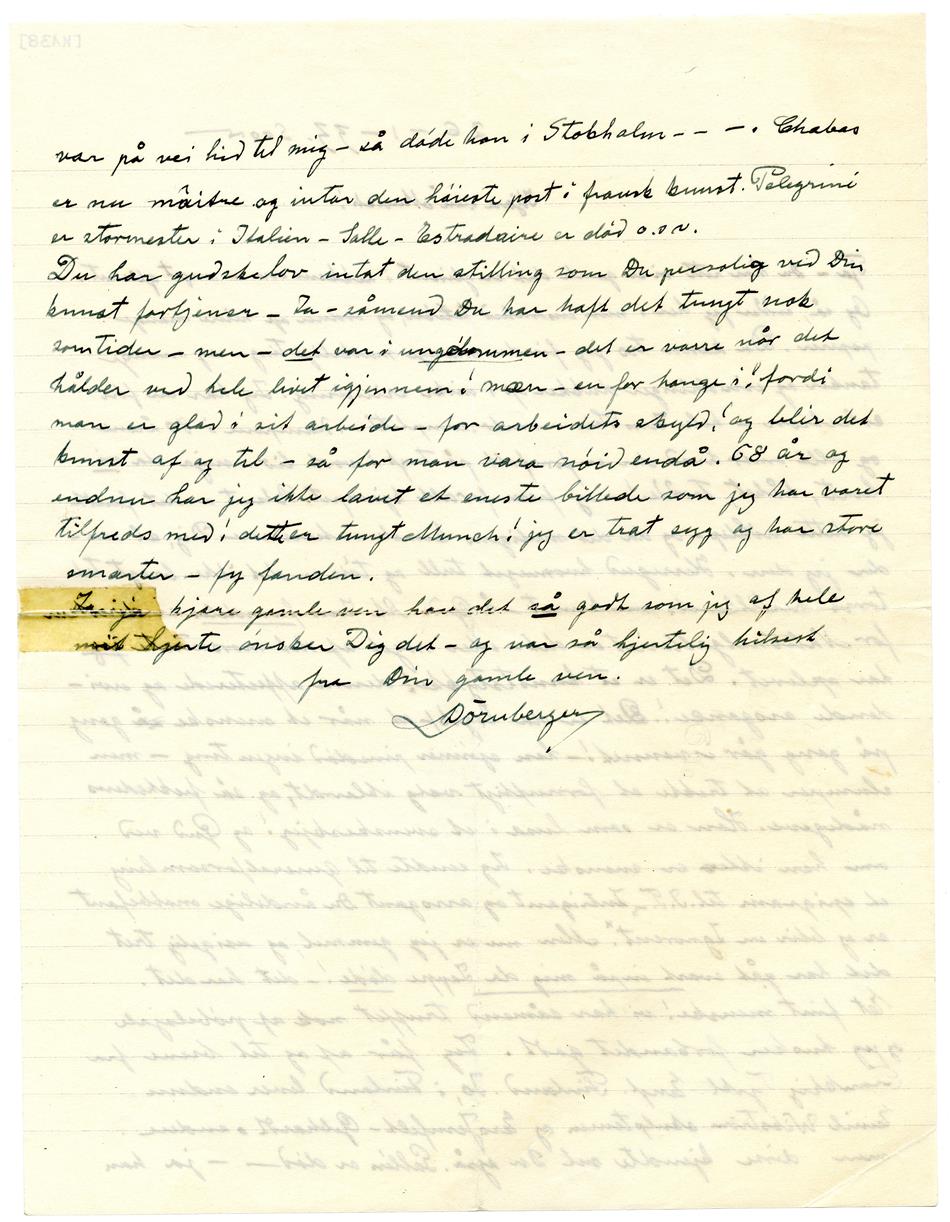 var på vei hid til mig – så döde han i Stokholm – – –. Chabas
er nu mäitre og intar den höieste post i fransk kunst. Pelegrini
er stormester i Italien – Salle – Estradaire er död o.s.v.
Du har gudskelov intat den stilling som Du personlig ved Din
kunst fortjener – Ja – såmend Du har haft det tungt nok
somtider – men – det var i ungdommen – det er værre når det
hålder ved hele livet igjennem! men – en får hange i! fordi
man er glad i sit arbeide – for arbeidets skyld! og blir det
kunst af og til – så får man være nöid endå. 68 år og
endnu har jeg ikke lavet et eneste billede som jeg har været
tilfreds med! dette er tungt Munch! jeg er træt syg og har store
smærter – fy fanden.
kjære gamle ven hav det så godt som jeg af hele
mit hjerte önsker Dig det – og vær så hjertelig hilset
fra Din gamle ven.
Dörnberger